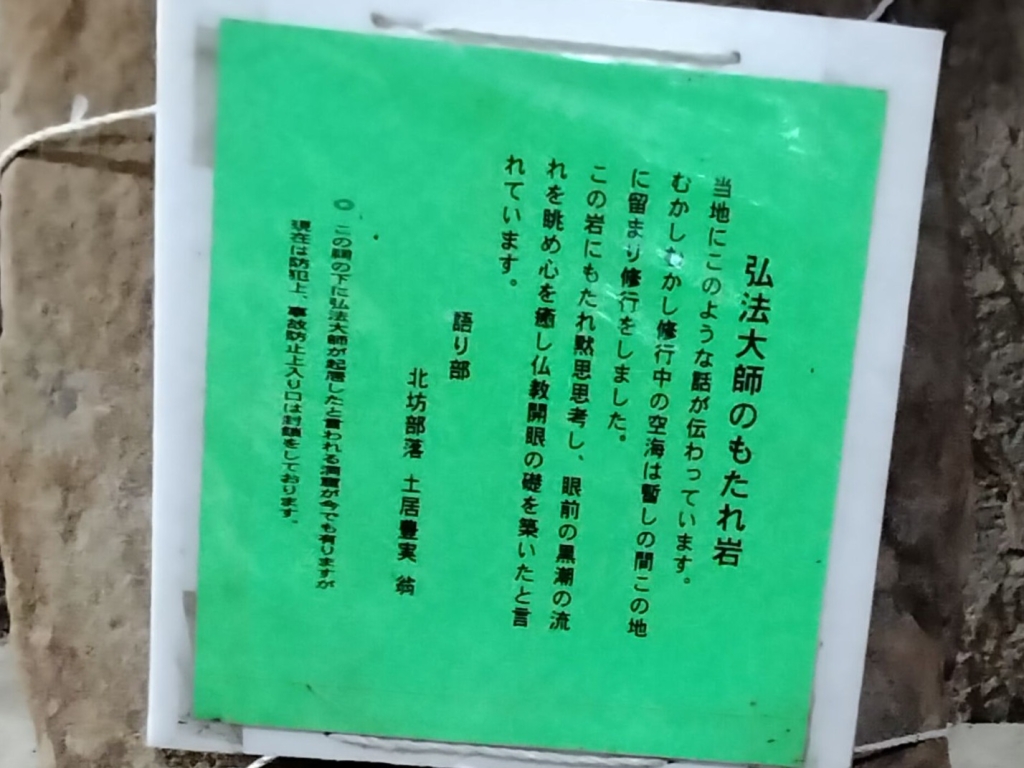 弘法大師のもたれ岩
当地にこのような話が伝わっています。
むかしむかし修行中の空海は暫しの間この地
に留まり修行をしました。
この岩にもたれ黙思思考し、眼前の黒潮の流
れを眺め心を癒し仏教開眼の礎を築いたと言
れています。
語り部
北坊部落 土居豊実 翁
◎ この祠の下に弘法大師が起居したと言われる洞窟が今でも有りますが
現在は防犯上、事故防止上入り口は封鎖をしております。